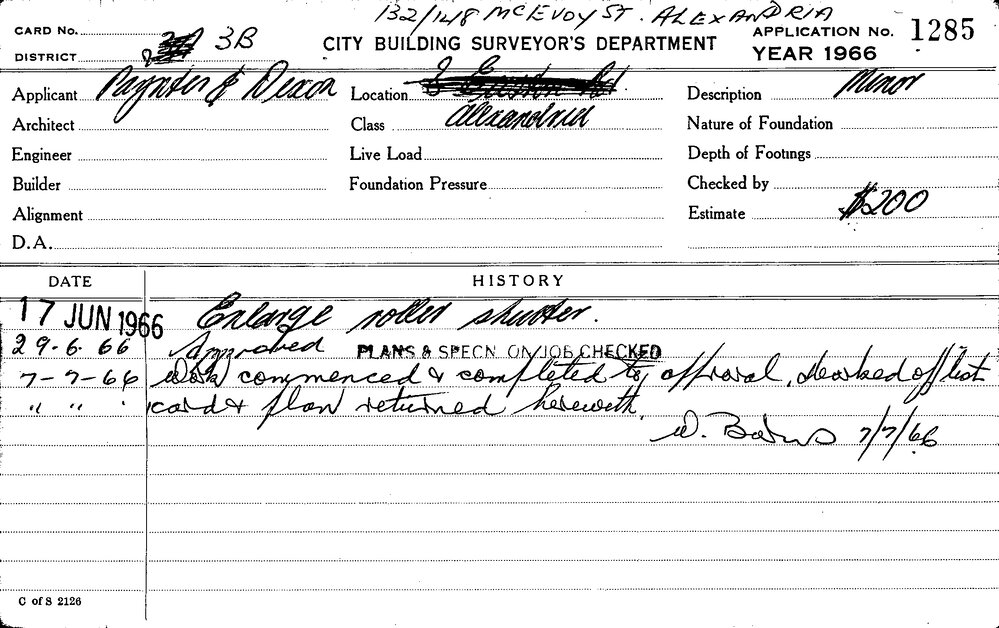 132/148 MCEVOY ST. ALEXANDRIA
CARD No. APPLICATION No. 1285
DISTRICT 3B CITY BUILDING SURVEYOR'S DEPARTMENT YEAR 1966
Applicant Paynter & Dixon Location Description Minor
Architect Class Alexandria Nature of Foundation
Engineer Live Load Depth of Footings
Builder Foundation Pressure Checked by
Alignment Estimate $200
D.A.
DATE HISTORY
17 JUN 1966 Enlarge roller shutter.
29.6.66 Approved PLANS & SPECN. ON JOB CHECKED
7-7-66 Work commenced & completed to approval. Marked off list
" " " card & plan returned herewith.
W. 7/7/66
C of S 2126